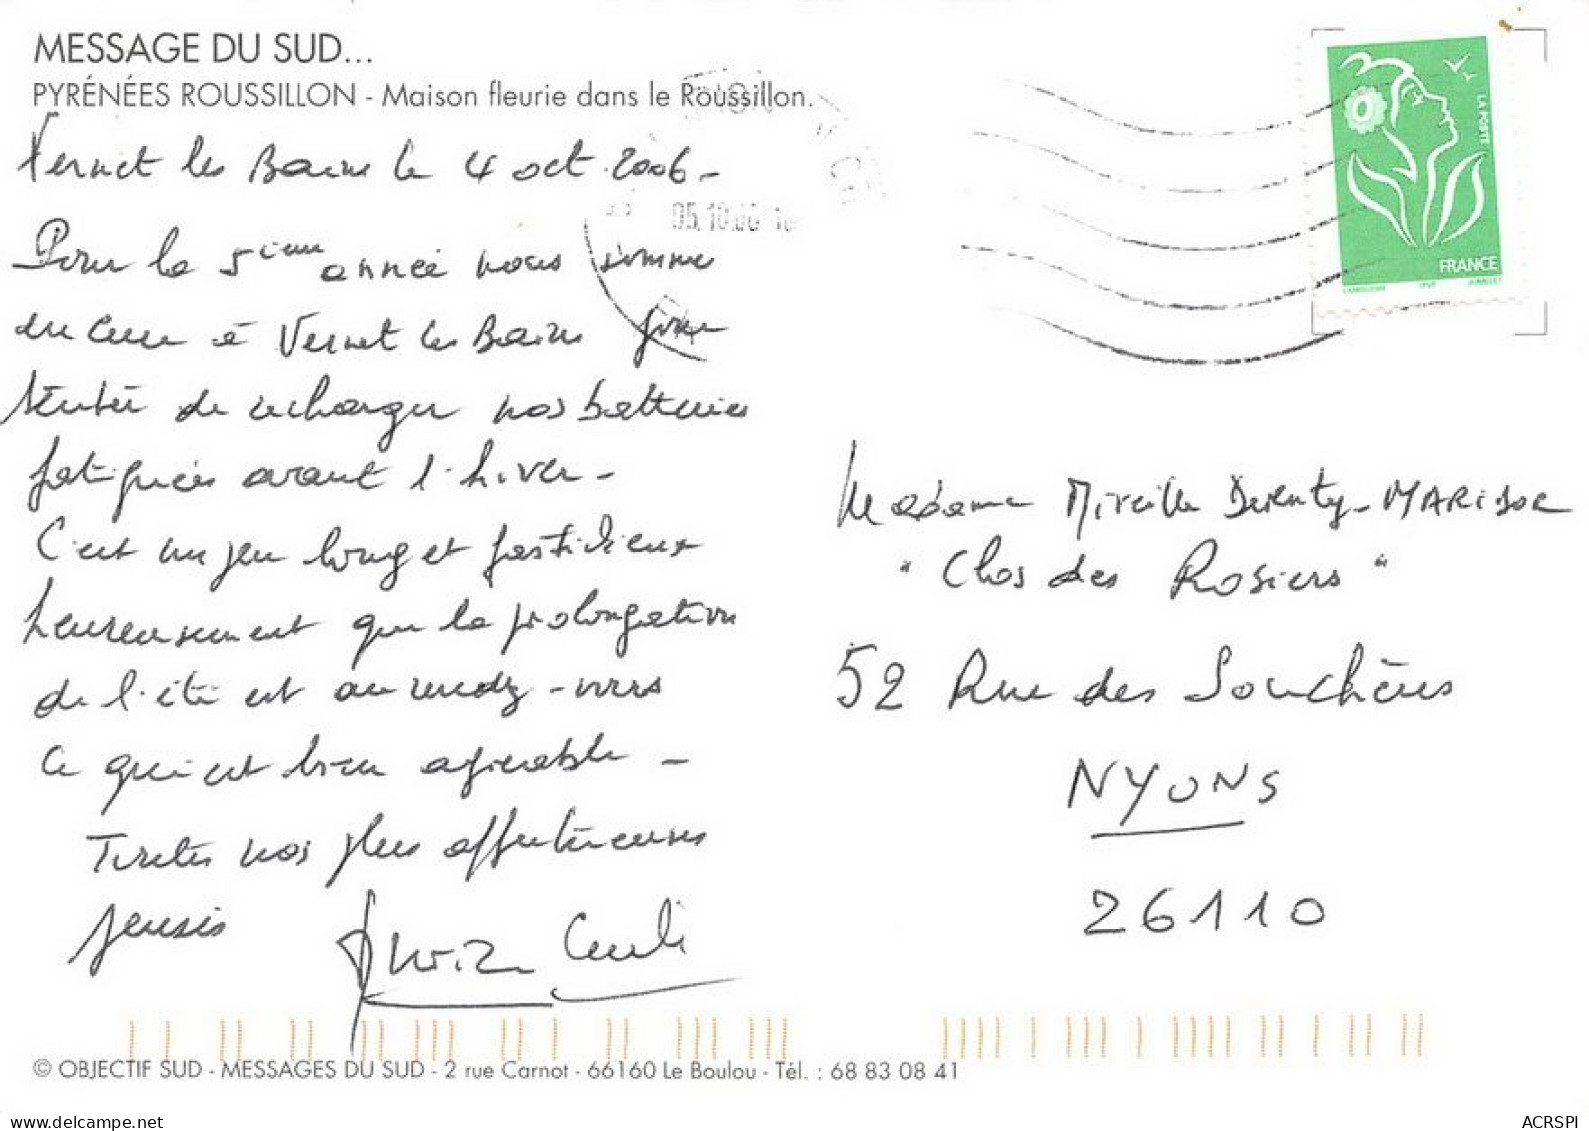 MESSAGE DU SUD...
PYRÉNÉES ROUSSILLON - Maison fleurie dans le Roussillon.
Vernet les Bains le 4 oct 2006 -
Pour la 5ième année nous somme
à Vernet les Bains pour
tenter de recharger nos batteries
fatiguées avant l'hiver -
C'est un peu long et fastidieux
heureusement que la prolongation
de l'été est au rendez-vous
ce qui est bien agréable -
Toutes nos plus affectueuses
pensées
05.10.06
LA POSTE
FRANCE
Madame Mireille
"Clos des Rosiers"
52 Rue des Souchères
NYONS
26110
© OBJECTIF SUD - MESSAGES DU SUD - 2 rue Carnot - 66160 Le Boulou - Tél. : 68 83 08 41
www.delcampe.net
ACRSPI